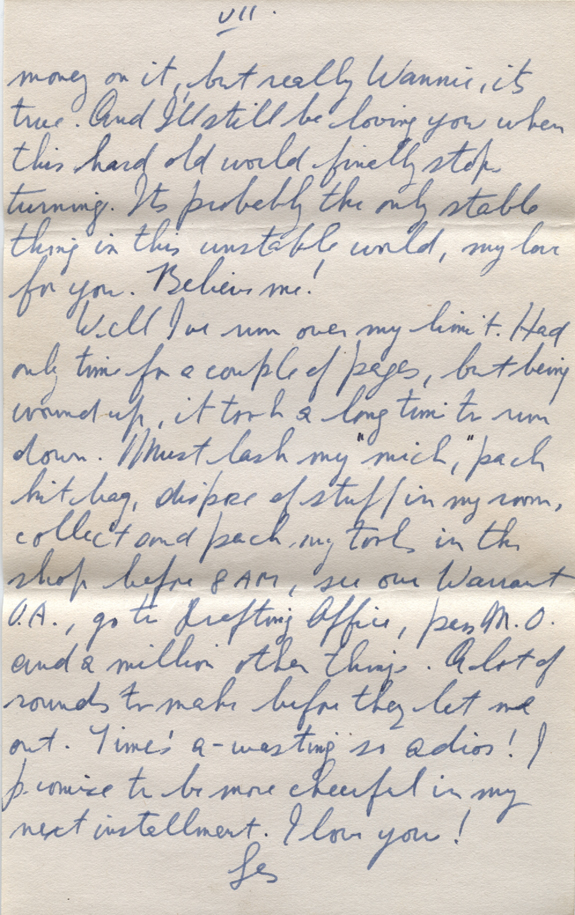 VII.
money on it, but really Wannie, its
true. And I'll still be loving you when
this hard old world finally stops
turning. Its probably the only stable
thing in this unstable world, my love
for you. Believe me!
Well I've run over my limit. Had
only time for a couple of pages, but being
wound up, it took a long time to run
down. Must lash my "mich," pack
kit bag, dispose of stuff in my room,
collect and pack my tools in the
shop before 8 AM, see our Warrant
O.A., go to Drafting Office, pass M.O.
and a million other things. A lot of
rounds to make before they let me
out. Time's a-wasting so adios! I
promise to be more cheerful in my
next installment. I love you!
Les